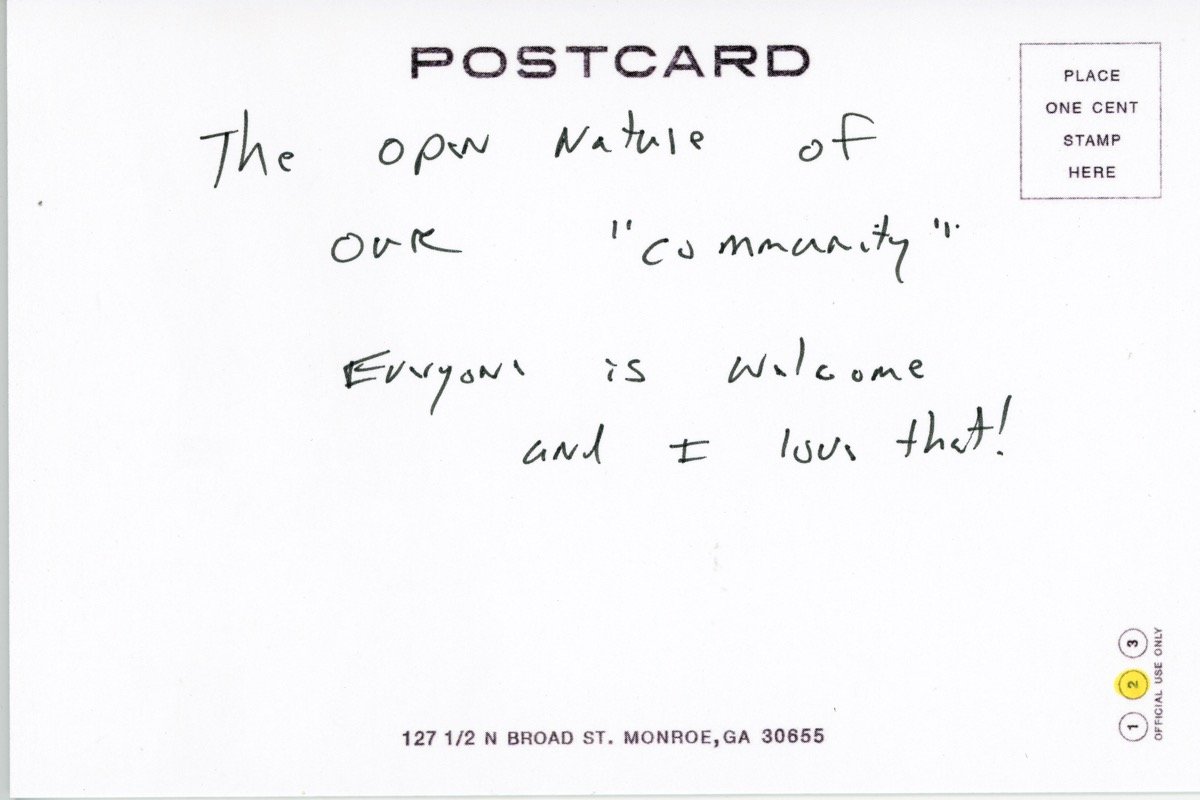 POSTCARD
PLACE
ONE CENT
STAMP
HERE
The open Nature of
our "community".
Everyone is welcome
and I love that!
127 1/2 N BROAD ST. MONROE,GA 30655
1 2 3
OFFICIAL USE ONLY